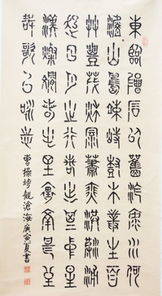 東臨碣石以觀滄海水何
澹澹山島竦峙樹木叢生百
艸豐茂秋風蕭瑟洪波涌
起日月之行若出其中星
漢燦爛若出其里幸甚至
哉歌以詠志
曹操詩觀滄海庚寅夏書